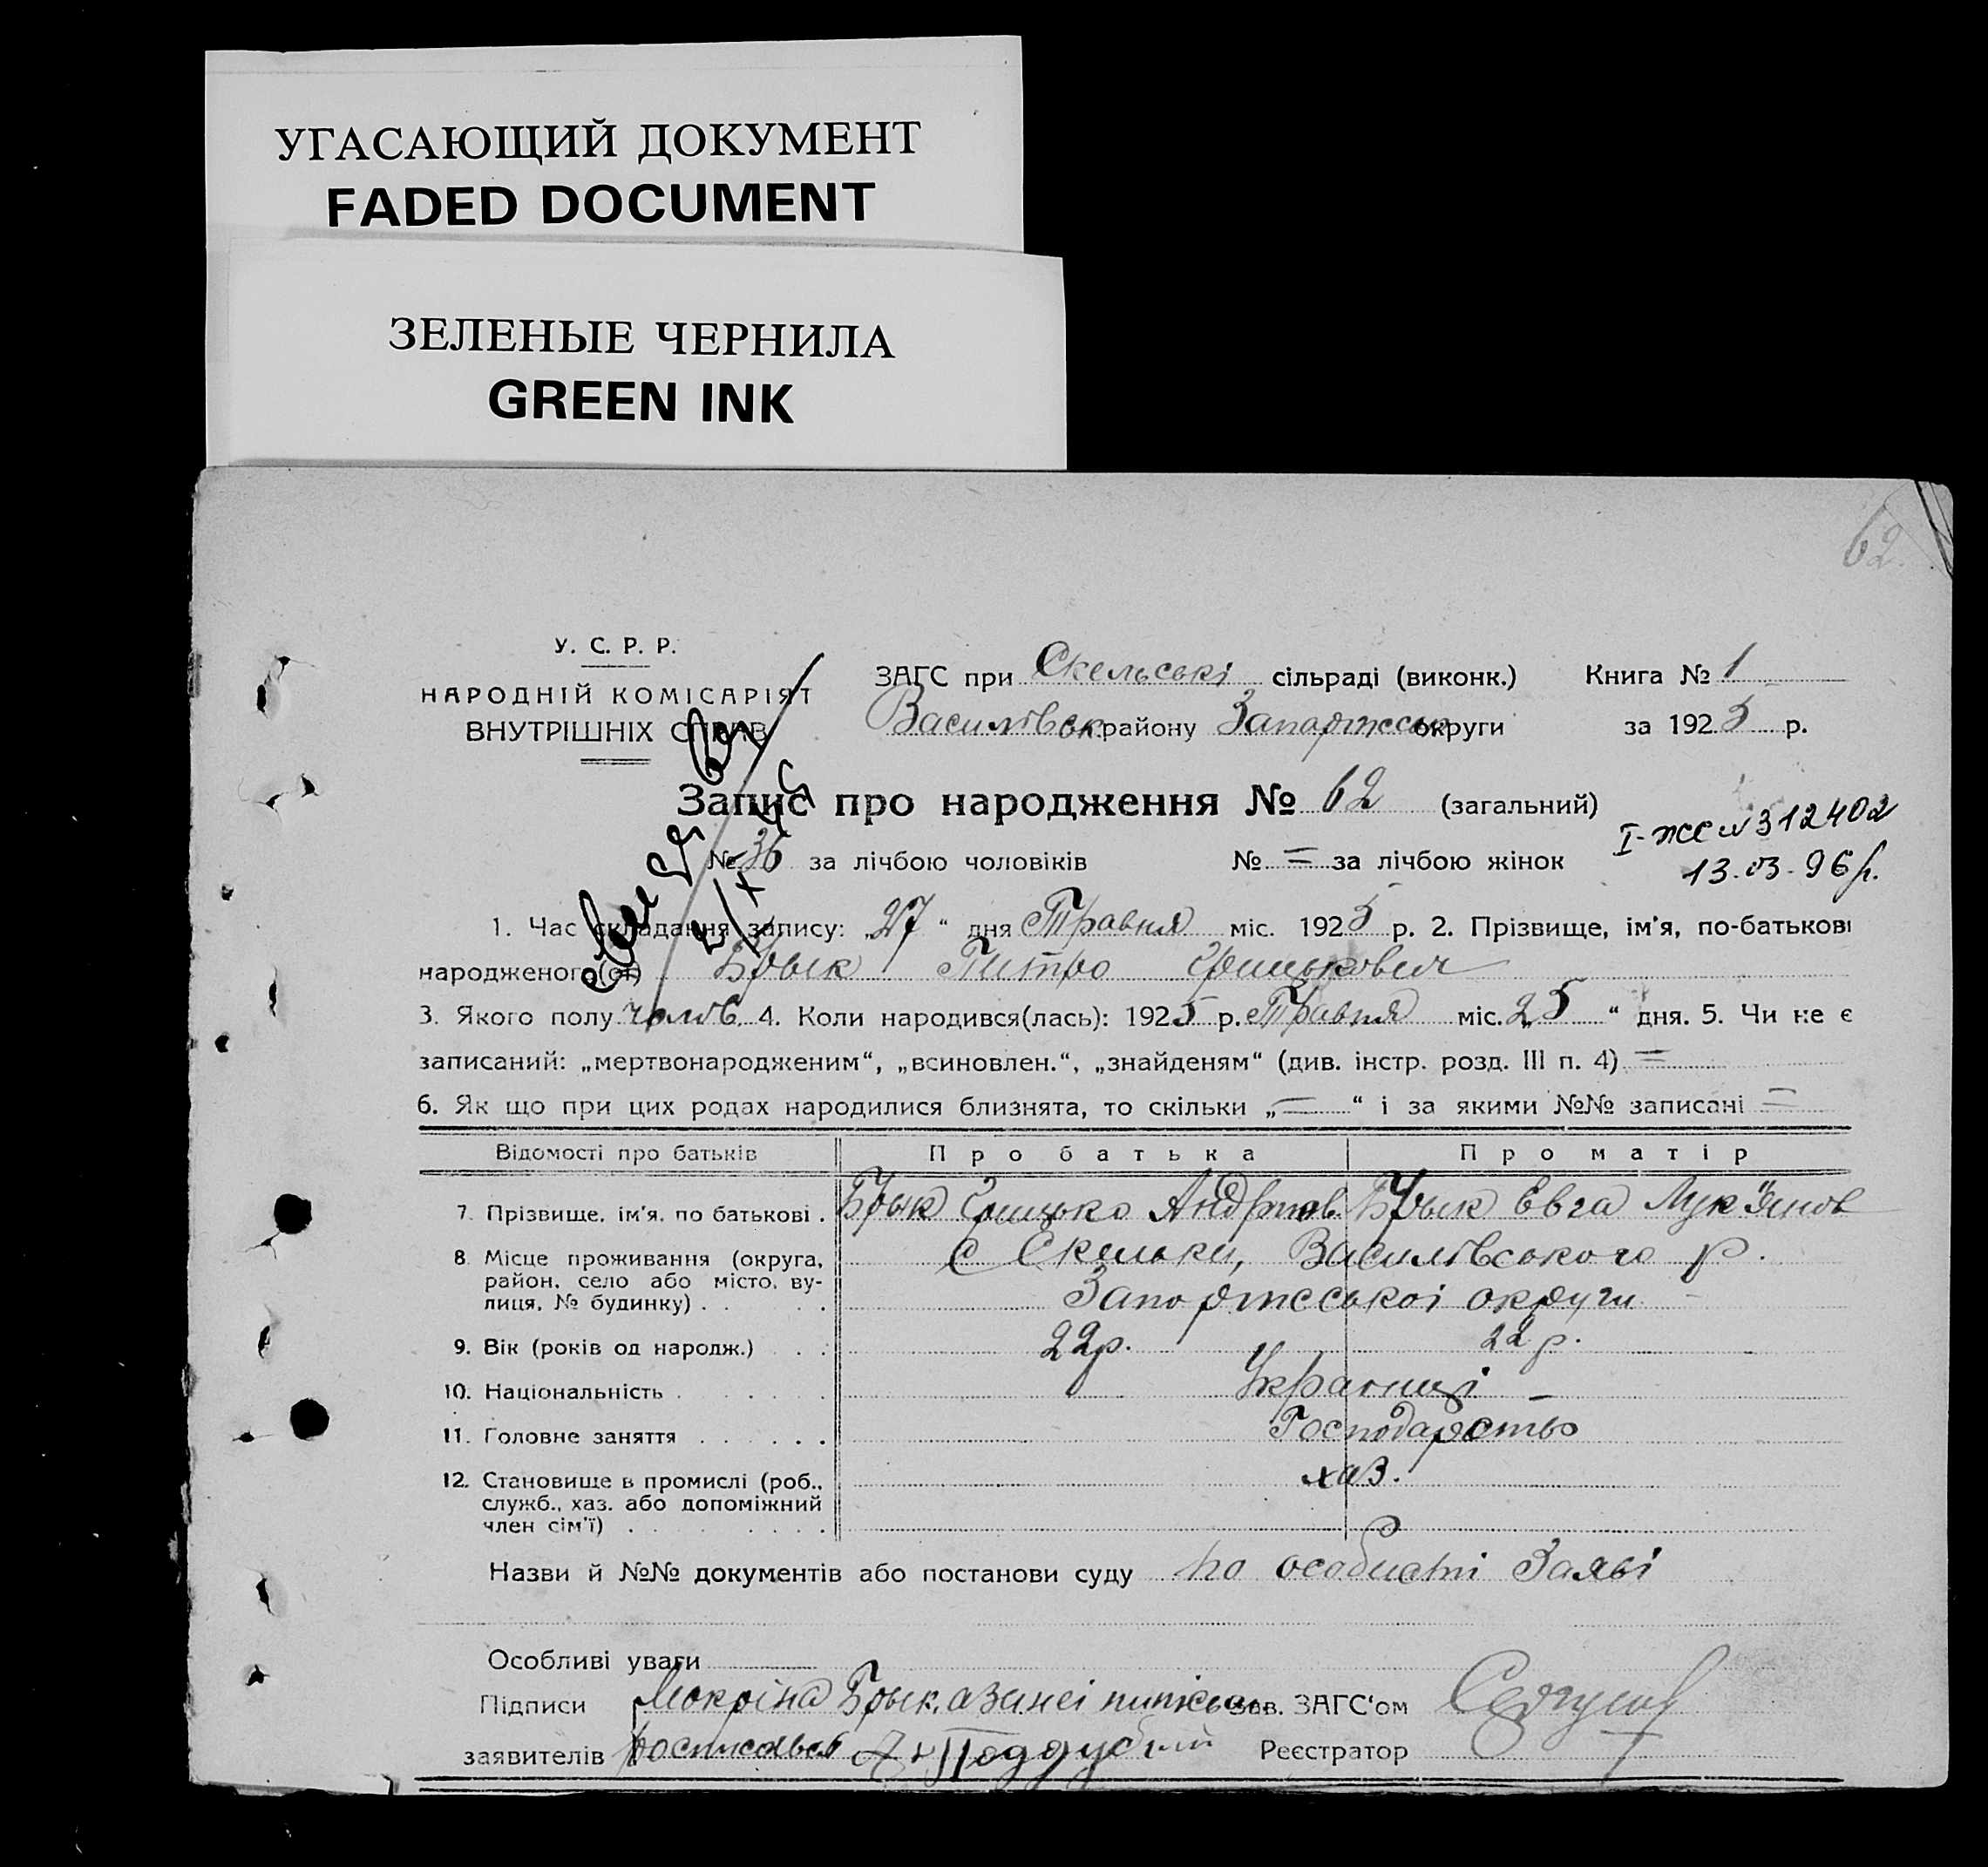 УГАСАЮЩИЙ ДОКУМЕНТ
FADED DOCUMENT
ЗЕЛЕНЫЕ ЧЕРНИЛА
GREEN INK
62.
У. С. Р. Р.
НАРОДНІЙ КОМІСАРІЯТ
ВНУТРІШНІХ СПРАВ
ЗАГС при Скельські сільраді (виконк.) Книга № 1
Василівськ району Запоріжськ округи за 1925 р.
Запис про народження № 62 (загальний)
І-ЖС № 312402
13.03.96 р.
№ 36 за лічбою чоловіків № = за лічбою жінок
1. Час складання запису: „27“ дня Травня міс. 1925 р. 2. Прізвище, ім'я, по-батькові
народженого(ої) Брык Питро Грицькович
3. Якого полу чолов. 4. Коли народився(лась): 1925 р. Травня міс. „25“ дня. 5. Чи не є
записаний: „мертвонародженим“, „всиновлен.“, „знайденям“ (див. інстр. розд. III п. 4) =
6. Як що при цих родах народилися близнята, то скільки „=“ і за якими №№ записані =
Відомості про батьків Про батька Про матір
7. Прізвище, ім'я, по батькові . Брык Грицько Андріів. Брык Евга Лук'янов
8. Місце проживання (округа, район, село або місто, вулиця, № будинку) . . . с Скельки, Василівського р.
Запоріжської округи
9. Вік (років од народж.) . . . 22 р. 22 р.
10. Національність . . . . . Украінці
11. Головне заняття . . . . . Господарство
12. Становище в промислі (роб., служб., хаз. або допоміжний член сім'ї) . . . . . хаз.
Назви й №№ документів або постанови суду по особисті Заяві
Особливі уваги
Підписи Мокріна Брык, а за неі Зав. ЗАГС'ом
заявителів росписався Поддубний Реєстратор